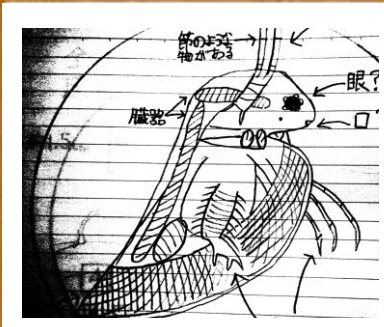 節のような
物がある
眼?
口
臓器